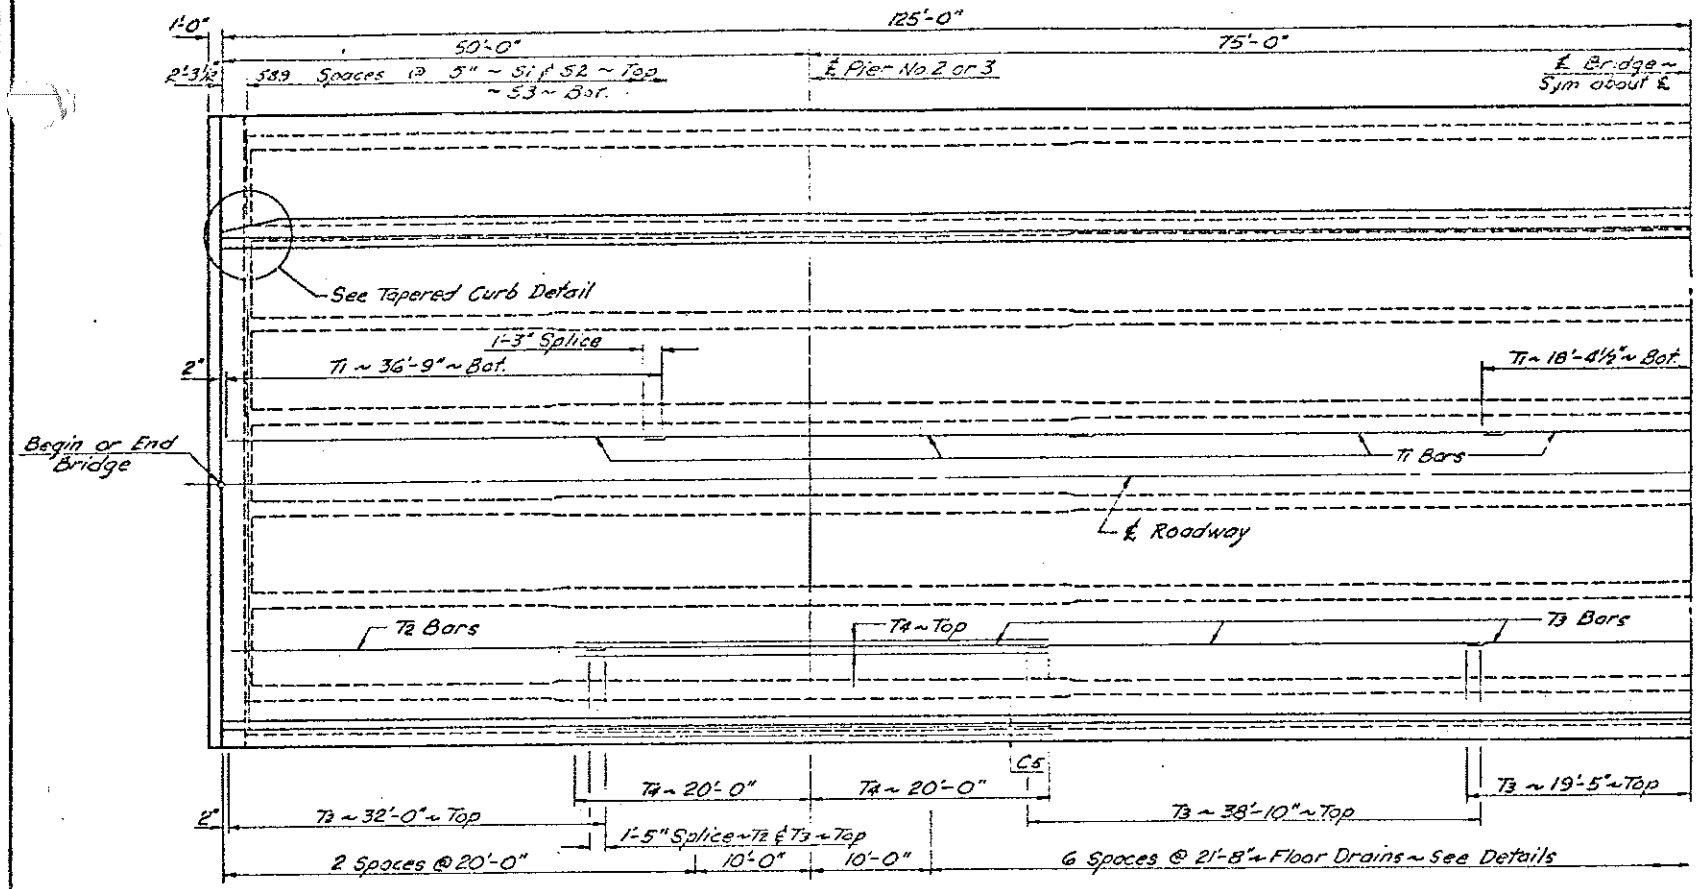 1'-0"
125'-0"
50'-0"
75'-0"
2'-3½"
589 Spaces @ 5" ~ S1 & S2 ~ Top
~ S3 ~ Bot.
℄ Pier No. 2 or 3
℄ Bridge ~
Sym about ℄
See Tapered Curb Detail
1'-3" Splice
2"
T1 ~ 36'-9" ~ Bot.
T1 ~ 18'-4½" ~ Bot.
Begin or End
Bridge
T1 Bars
℄ Roadway
T2 Bars
T4 ~ Top
T3 Bars
C5
T4 ~ 20'-0"
T4 ~ 20'-0"
T3 ~ 19'-5" ~ Top
2"
T2 ~ 32'-0" ~ Top
T3 ~ 38'-10" ~ Top
1'-5" Splice ~ T2 & T3 ~ Top
2 Spaces @ 20'-0"
10'-0"
10'-0"
6 Spaces @ 21'-8" ~ Floor Drains ~ See Details